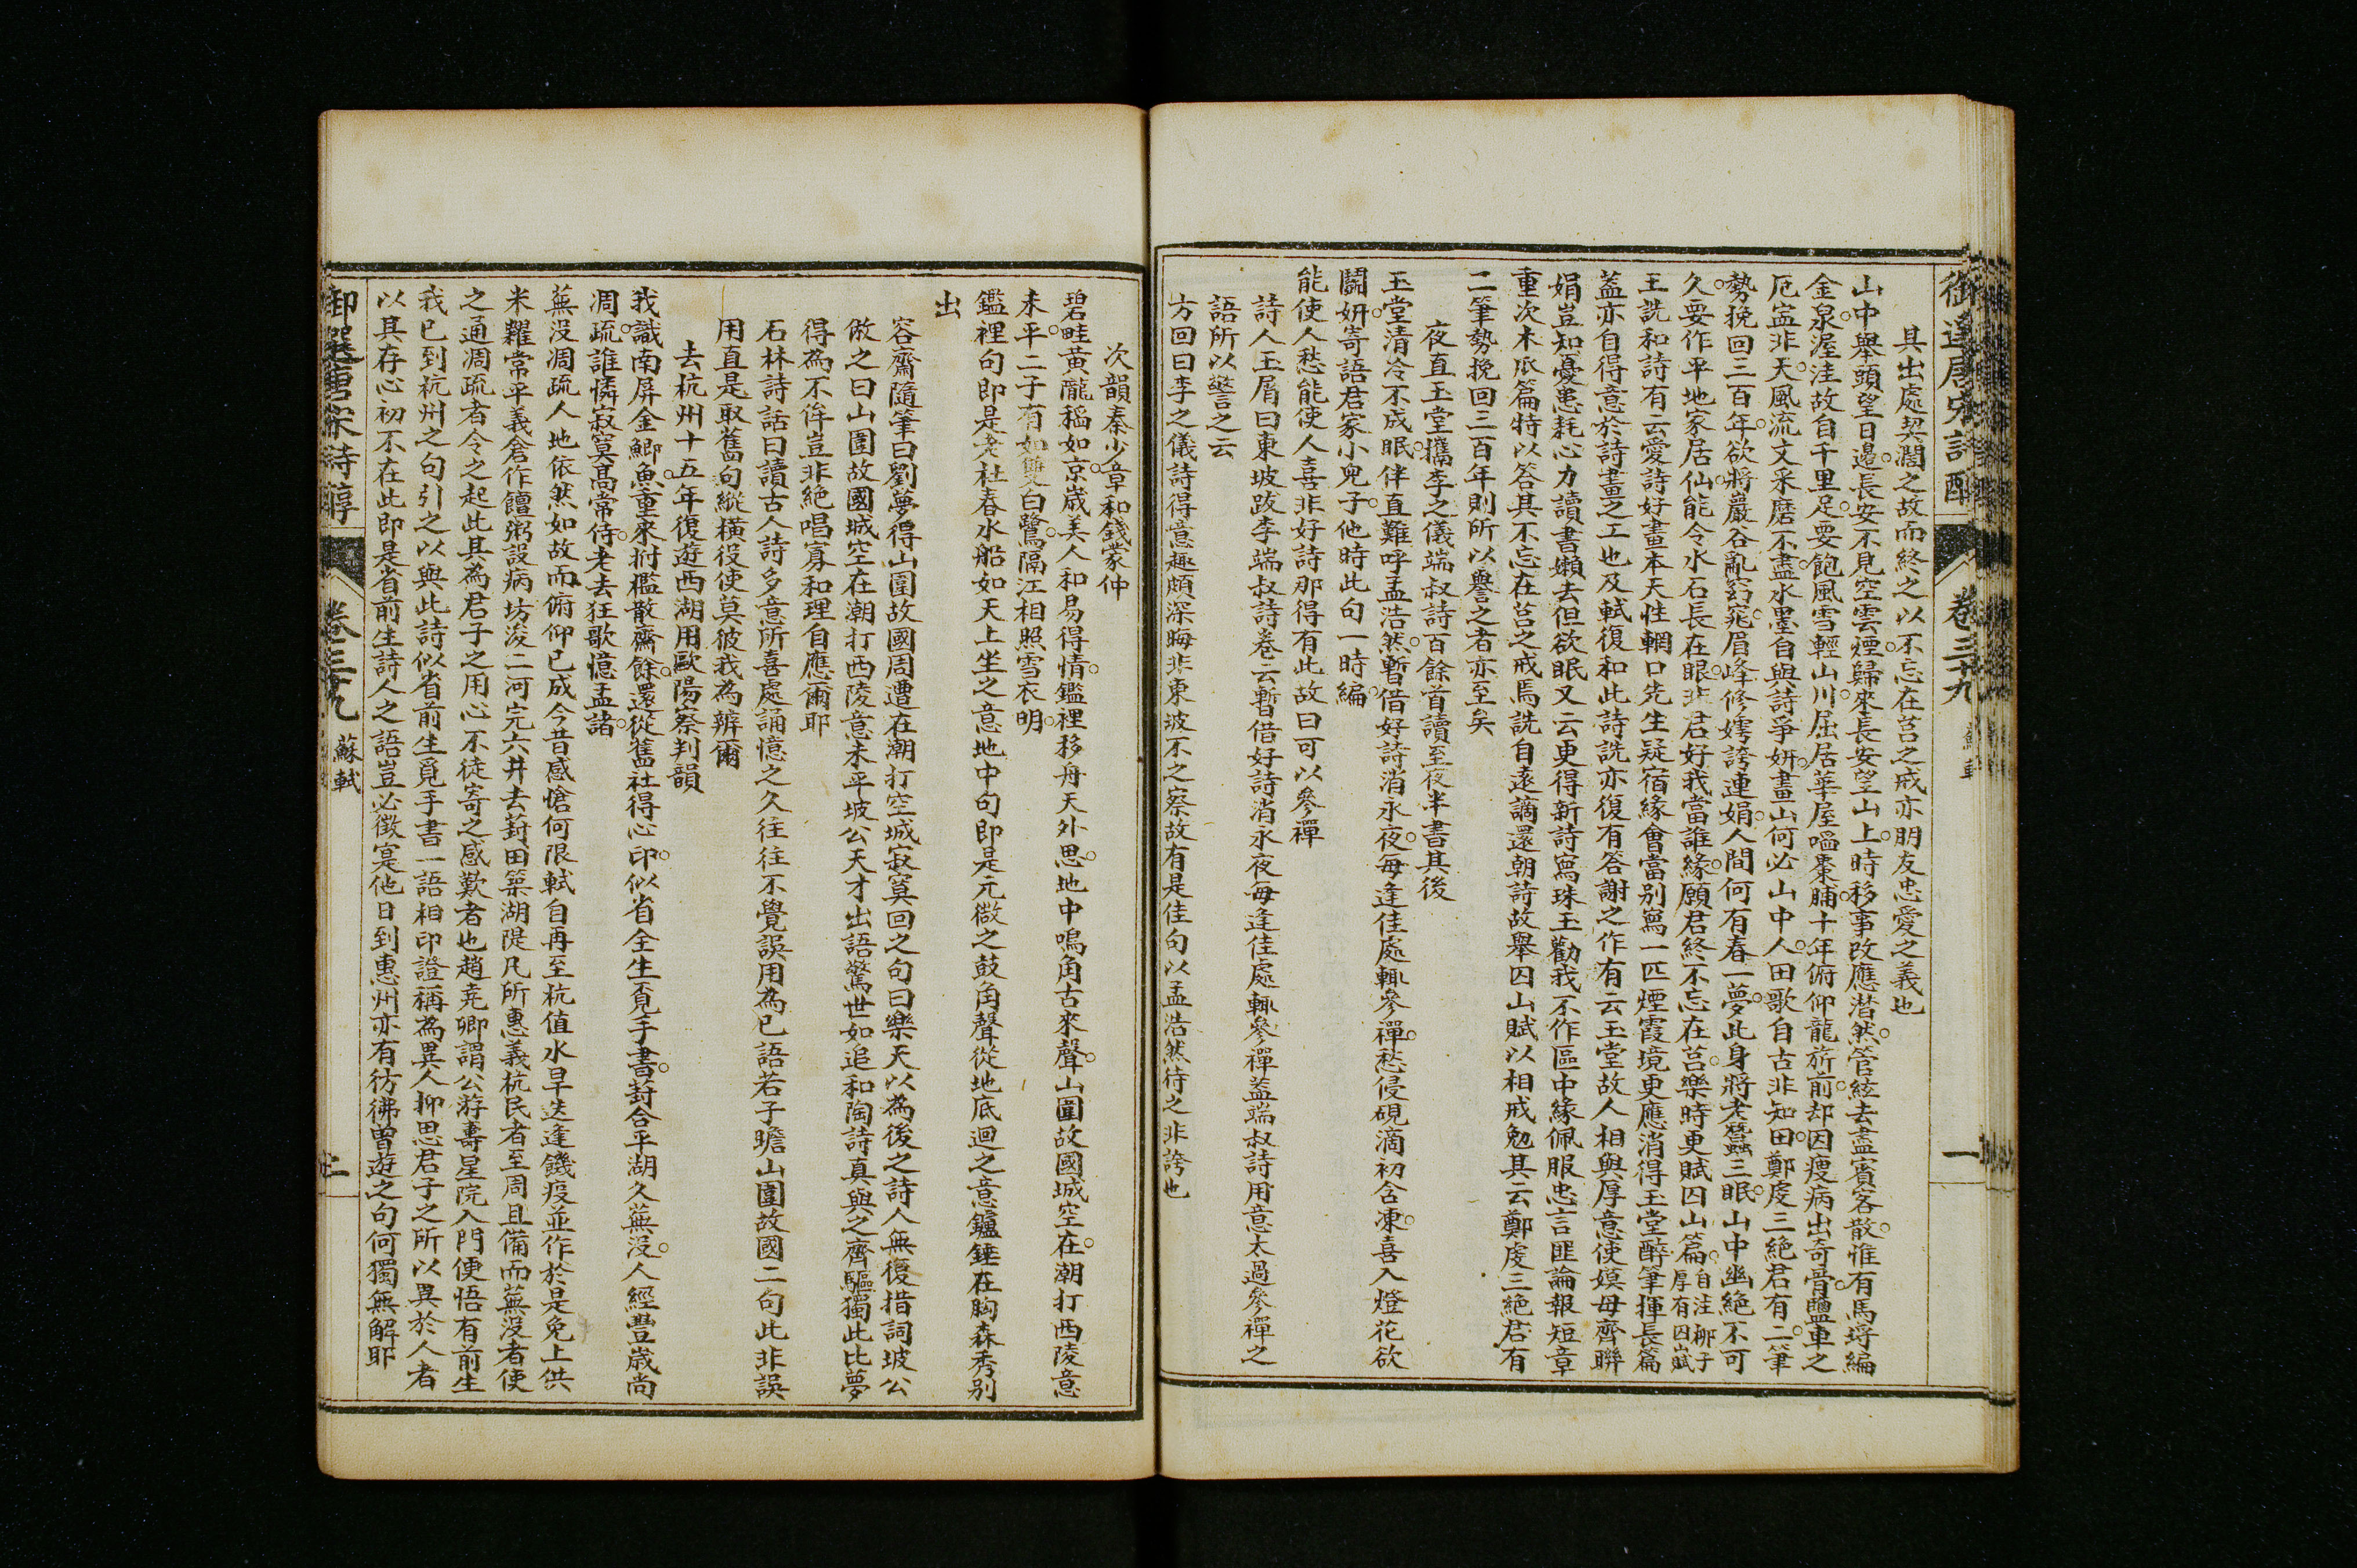 御選唐宋詩醇 卷三十九 蘇軾 一
其出處契濶之故而終之以不忘在莒之戒亦朋友忠愛之義也
山中舉頭望日邊長安不見空雲煙歸來長安望山上時移事改應潸然管絃去盡賓客散惟有馬埒編
金泉渥洼故自千里足要飽風雪輕山川屈居華屋啗棗脯十年俯仰龍旂前却因瘦病出奇骨鹽車之
厄寍非天風流文采磨不盡水墨自與詩爭妍畫山何必山中人田歌自古非知田鄭虔三絶君有二筆
勢挽回三百年欲將巖谷亂窈窕眉峰修嫮誇連娟人間何有春一夢此身將老蠶三眠山中幽絶不可
久要作平地家居仙能令水石長在眼非君好我當誰緣願君終不忘在莒樂時更賦囚山篇自注栁子厚有囚山賦
王詵和詩有云愛詩好畫本天性輞口先生疑宿緣會當别寫一匹煙霞境更應消得玉堂醉筆揮長篇
蓋亦自得意於詩畫之工也及軾復和此詩詵亦復有答謝之作有云玉堂故人相與厚意使嫫母齊聯
娟豈知憂患耗心力讀書嬾去但欲眠又云更得新詩寫珠玉勸我不作區中緣佩服忠言匪論報短章
重次木瓜篇特以答其不忘在莒之戒焉詵自遠謫還朝詩故舉囚山賦以相戒勉其云鄭虔三絶君有
二筆勢挽回三百年則所以譽之者亦至矣
夜直玉堂攜李之儀端叔詩百餘首讀至夜半書其後
玉堂清冷不成眠伴直難呼孟浩然暫借好詩消永夜每逢佳處輒參禪愁侵硯滴初含凍喜入燈花欲
鬭妍寄語君家小兒子他時此句一時編
能使人愁能使人喜非好詩那得有此故曰可以參禪
詩人玉屑曰東坡跋李端叔詩卷云暫借好詩消永夜每逢佳處輒參禪蓋端叔詩用意太過參禪之
語所以警之云
方回曰李之儀詩得意趣頗深晦非東坡不之察故有是佳句以孟浩然待之非誇也
次韻秦少章和錢蒙仲
碧畦黄隴稻如京歲美人和易得情鑑裡移舟天外思地中鳴角古來聲山圍故國城空在潮打西陵意
未平二子有如雙白鷺隔江相照雪衣明
鑑裡句即是老杜春水船如天上坐之意地中句即是元微之鼓角聲從地底迴之意鑪錘在胸森秀别
出
容齋隨筆曰劉夢得山圍故國周遭在潮打空城寂寞回之句曰樂天以為後之詩人無復措詞坡公
倣之曰山圍故國城空在潮打西陵意未平坡公天才出語驚世如追和陶詩真與之齊驅獨此比夢
得為不侔豈非絶唱寡和理自應爾耶
石林詩話曰讀古人詩多意所喜處誦憶之久往往不覺誤用為已語若子瞻山圍故國二句此非誤
用直是取舊句縱横役使莫彼我為辨爾
去杭州十五年復遊西湖用歐陽察判韻
我識南屏金鯽魚重來拊檻散齋餘還從舊社得心印似省全生覓手書葑合平湖久蕪没人經豐歲尚
凋疏誰憐寂寞髙常侍老去狂歌憶孟諸
蕪没凋疏人地依然如故而俯仰已成今昔感愴何限軾自再至杭值水旱迭逢饑疫並作於是免上供
米糴常平義倉作饘粥設病坊浚二河完六井去葑田築湖隄凡所惠義杭民者至周且備而蕪没者使
之通凋疏者令之起此其為君子之用心不徒寄之感歎者也趙堯卿謂公游壽星院入門便悟有前生
我已到杭州之句引之以與此詩似省前生覓手書一語相印證稱為異人抑思君子之所以異於人者
以其存心初不在此即是省前生詩人之語豈必徵寔他日到惠州亦有彷彿曽遊之句何獨無解耶
御選唐宋詩醇 卷三十九 蘇軾 二